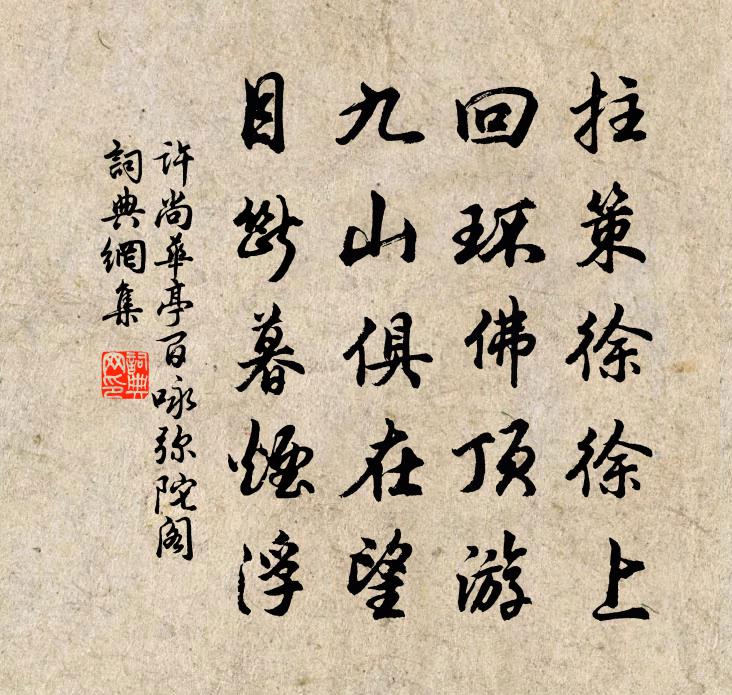 拄策徐徐上
回环佛顶游
九山俱在望
目断暮烟浮
许尚华亭百咏弥陀阁
詞典網集
詞典網印